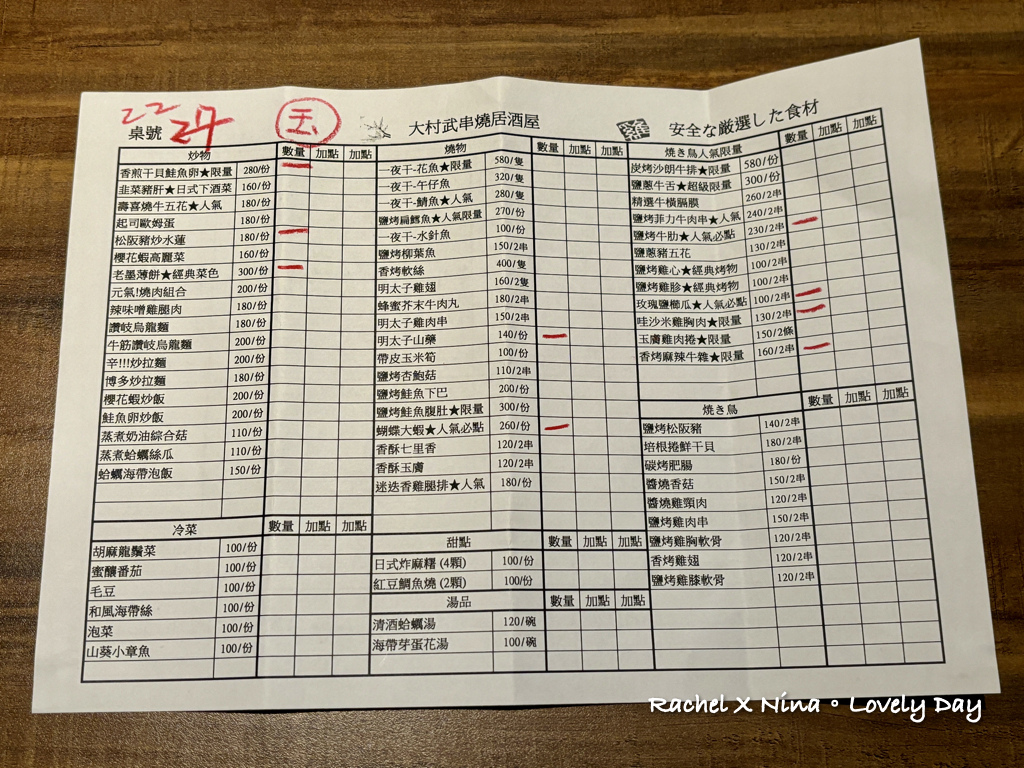 22
桌號 27 玉 大村武串燒居酒屋 雞 安全な厳選した食材
炒物 數量 加點 加點
香煎干貝鮭魚卵★限量 280/份
韭菜豬肝★日式下酒菜 160/份
壽喜燒牛五花★人氣 180/份
起司歐姆蛋 180/份
松阪豬炒水蓮 180/份
櫻花蝦高麗菜 160/份
老墨薄餅★經典菜色 300/份
元氣!燒肉組合 200/份
辣味噌雞腿肉 180/份
讚岐烏龍麵 180/份
牛筋讚岐烏龍麵 200/份
辛!!!炒拉麵 200/份
博多炒拉麵 180/份
櫻花蝦炒飯 200/份
鮭魚卵炒飯 200/份
蒸煮奶油綜合菇 110/份
蒸煮蛤蠣絲瓜 110/份
蛤蠣海帶泡飯 150/份
冷菜 數量 加點 加點
胡麻龍鬚菜 100/份
蜜釀番茄 100/份
毛豆 100/份
和風海帶絲 100/份
泡菜 100/份
山葵小章魚 100/份
燒物 數量 加點 加點
一夜干-花魚★限量 580/隻
一夜干-午仔魚 320/隻
一夜干-鯖魚★人氣 280/隻
鹽烤扁鱈魚★人氣限量 270/份
一夜干-水針魚 100/份
鹽烤柳葉魚 150/2串
香烤軟絲 400/隻
明太子雞翅 160/2隻
蜂蜜芥末牛肉丸 180/2串
明太子雞肉串 150/2串
明太子山藥 140/份
帶皮玉米筍 100/份
鹽烤杏鮑菇 110/2串
鹽烤鮭魚下巴 200/份
鹽烤鮭魚腹肚★限量 300/份
蝴蝶大蝦★人氣必點 260/份
香酥七里香 120/2串
香酥玉膚 120/2串
迷迭香雞腿排★人氣 180/份
甜點 數量 加點 加點
日式炸麻糬 (4顆) 100/份
紅豆鯛魚燒 (2顆) 100/份
湯品 數量 加點 加點
清酒蛤蠣湯 120/碗
海帶芽蛋花湯 100/碗
焼き鳥人氣限量 數量 加點 加點
炭烤沙朗牛排★限量 580/份
鹽蔥牛舌★超級限量 300/份
精選牛橫膈膜 260/2串
鹽烤菲力牛肉串★人氣 240/2串
鹽烤牛肋★人氣必點 230/2串
鹽蔥豬五花 130/2串
鹽烤雞心★經典烤物 100/2串
鹽烤雞胗★經典烤物 100/2串
玫瑰鹽櫛瓜★人氣必點 100/2串
哇沙米雞胸肉★限量 130/2串
玉膚雞肉捲★限量 150/2條
香烤麻辣牛雜★限量 160/2串
焼き鳥 數量 加點 加點
鹽烤松阪豬 140/2串
培根捲鮮干貝 180/2串
碳烤肥腸 180/份
醬燒香菇 150/2串
醬燒雞頸肉 120/2串
鹽烤雞肉串 150/2串
鹽烤雞胸軟骨 120/2串
香烤雞翅 120/2串
鹽烤雞膝軟骨 120/2串
Rachel X Nina。Lovely Day